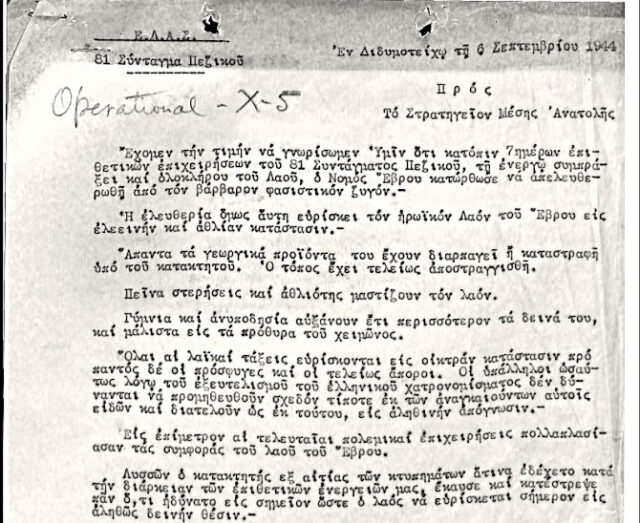 Ε.Λ.Α.Σ.
81 Σύνταγμα Πεζικοῦ
Ἐν Διδυμοτείχῳ τῇ 6 Σεπτεμβρίου 1944
Operational - X-5
Πρός
Τό Στρατηγεῖον Μέσης Ἀνατολῆς
Ἔχομεν τήν τιμήν νά γνωρίσωμεν Ὑμῖν ὅτι κατόπιν 7ημέρων ἐπι-
θετικῶν ἐπιχειρήσεων τοῦ 81 Συντάγματος Πεζικοῦ, τῇ ἐνεργῷ συμπρά-
ξει καί ὁλοκλήρου τοῦ Λαοῦ, ὁ Νομός Ἔβρου κατώρθωσε νά ἀπελευθε-
ρωθῇ ἀπό τόν βάρβαρον φασιστικόν ζυγόν.-
Ἡ ἐλευθερία ὅμως αὕτη εὑρίσκει τόν ἡρωϊκόν Λαόν τοῦ Ἔβρου εἰς
ἐλεεινήν καί ἀθλίαν κατάστασιν.-
Ἅπαντα τά γεωργικά προϊόντα του ἔχουν διαρπαγεῖ ἤ καταστραφῆ
ὑπό τοῦ κατακτητοῦ. Ὁ τόπος ἔχει τελείως ἀποστραγγισθῆ.
Πεῖνα στερήσεις καί ἀθλιότης μαστίζουν τόν λαόν.
Γύμνια καί ἀνυποδησία αὐξάνουν ἔτι περισσότερον τά δεινά του,
καί μάλιστα εἰς τά πρόθυρα τοῦ χειμῶνος.
Ὅλαι αἱ λαϊκαί τάξεις εὑρίσκονται εἰς οἰκτράν κατάστασιν πρό
παντός δέ οἱ πρόσφυγες καί οἱ τελείως ἄποροι. Οἱ ὑπάλληλοι ὡσαύ-
τως λόγῳ τοῦ ἐξευτελισμοῦ τοῦ ἑλληνικοῦ χατρονομίσματος δέν δύ-
νανται νά προμηθευθοῦν σχεδόν τίποτε ἐκ τῶν ἀναγκαιούντων αὐτοῖς
εἰδῶν καί διατελοῦν ὡς ἐκ τούτου, εἰς ἀληθινήν ἀπόγνωσιν.-
Εἰς ἐπίμετρον αἱ τελευταῖαι πολεμικαί ἐπιχειρήσεις πολλαπλασί-
ασαν τάς συμφοράς τοῦ λαοῦ τοῦ Ἔβρου.
Λυσσῶν ὁ κατακτητής ἐξ αἰτίας τῶν κτυπημάτων ἅτινα ἐδέχετο κατά
τήν διάρκειαν τῶν ἐπιθετικῶν ἐνεργειῶν μας, ἔκαυσε καί κατέστρεψε
πᾶν ὅ,τι ἠδύνατο εἰς σημεῖον ὥστε ὁ λαός νά εὑρίσκεται σήμερον εἰς
ἀληθῶς δεινήν θέσιν.-